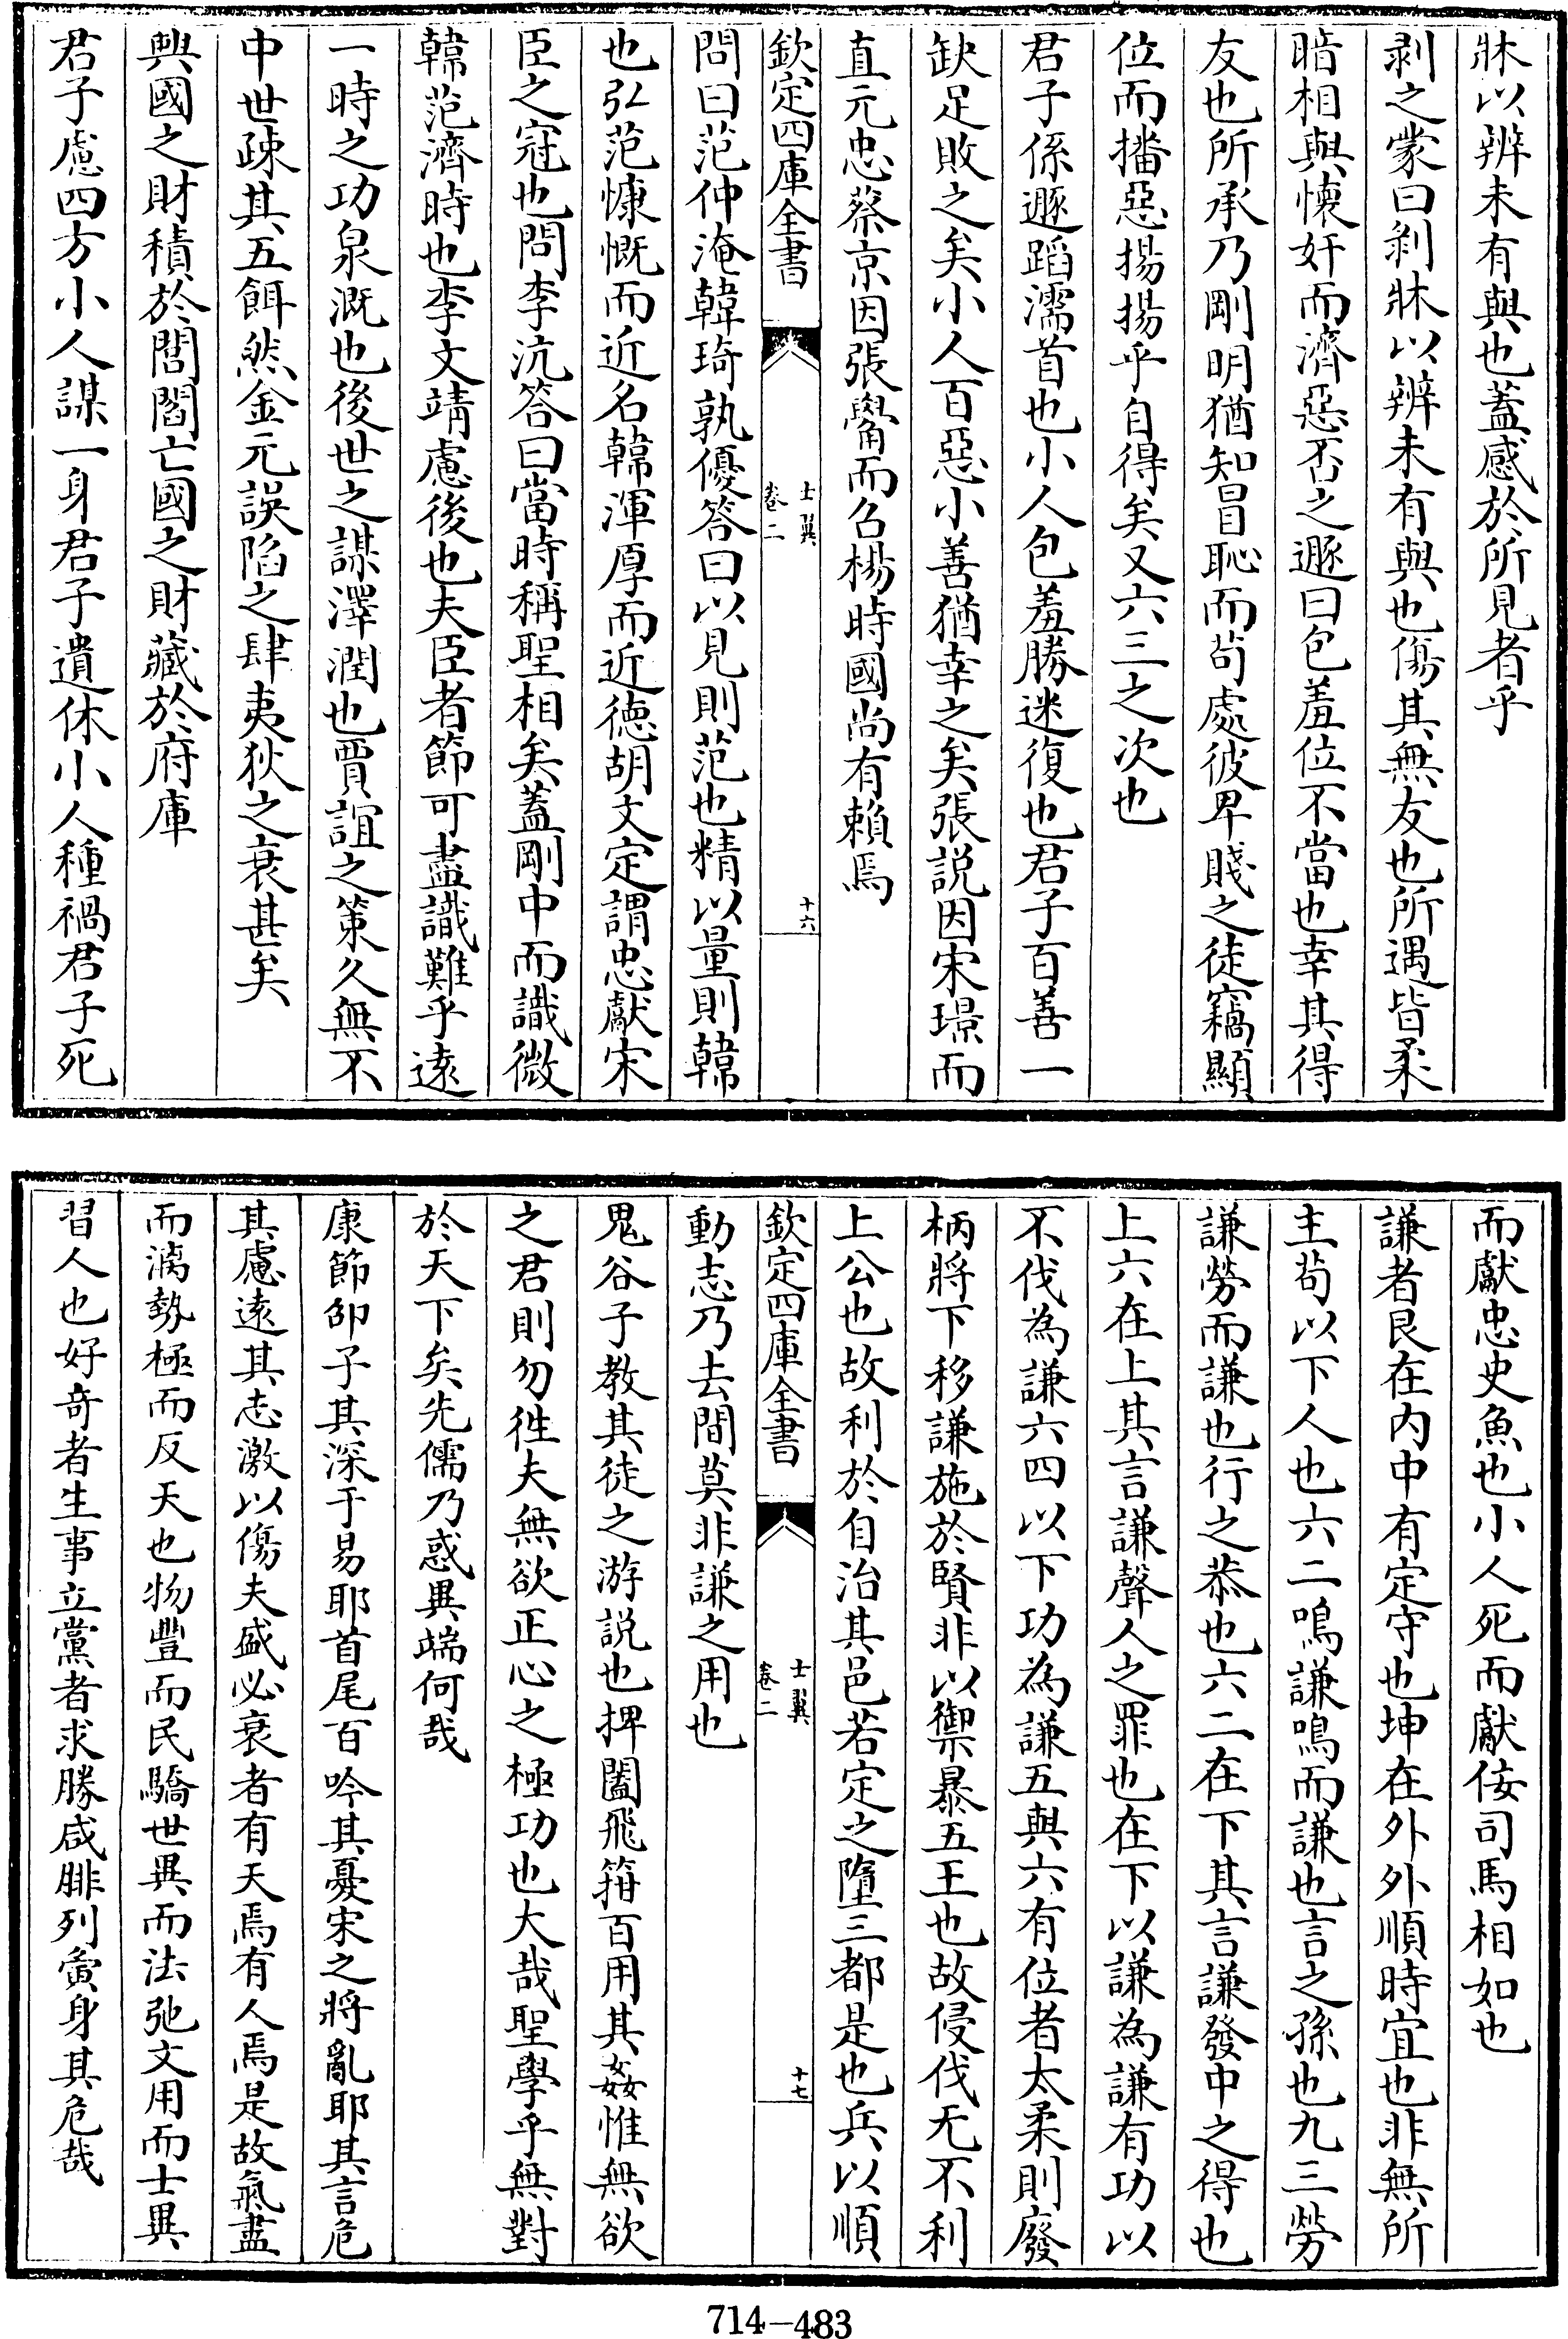 牀以辨未有與也蓋感於所見者乎
剥之蒙曰剥牀以辨未有與也傷其無友也所遇皆柔
暗相與懷奸而濟惡否之遯曰包羞位不當也幸其得
友也所承乃剛明猶知冒恥而茍處彼卑賤之徒竊顯
位而播惡揚揚乎自得矣又六三之次也
君子係遯蹈濡首也小人包羞勝迷復也君子百善一
缺足敗之矣小人百惡小善猶幸之矣張説因宋璟而
直元忠蔡京因張觷而召楊時國尚有賴焉
欽定四庫全書
士翼
卷二
十六
問曰范仲淹韓琦孰優答曰以見則范也精以量則韓
也弘范慷慨而近名韓渾厚而近徳胡文定謂忠獻宋
臣之冠也問李沆答曰當時稱聖相矣蓋剛中而識微
韓范濟時也李文靖慮後也夫臣者節可盡識難乎逺
一時之功泉溉也後世之謀澤潤也賈誼之策久無不
中世疎其五餌然金元誤陷之肆夷狄之衰甚矣
興國之財積於閭閻亡國之財藏於府庫
君子慮四方小人謀一身君子遺休小人種禍君子死
而獻忠史魚也小人死而獻侫司馬相如也
謙者艮在内中有定守也坤在外外順時宜也非無所
主茍以下人也六二鳴謙鳴而謙也言之孫也九三勞
謙勞而謙也行之恭也六二在下其言謙發中之得也
上六在上其言謙聲人之罪也在下以謙為謙有功以
不伐為謙六四以下功為謙五與六有位者太柔則廢
柄將下移謙施於賢非以禦暴五王也故侵伐无不利
上公也故利於自治其邑若定之墮三都是也兵以順
欽定四庫全書
士翼
卷二
十七
動志乃去間莫非謙之用也
鬼谷子教其徒之游説也捭闔飛箝百用其姦惟無欲
之君則勿徃夫無欲正心之極功也大哉聖學乎無對
於天下矣先儒乃惑異端何哉
康節邵子其深于易耶首尾百吟其憂宋之將亂耶其言危
其慮逺其志激以傷夫盛必衰者有天焉有人焉是故氣盡
而漓勢極而反天也物豐而民驕世異而法弛文用而士異
習人也好奇者生事立黨者求勝咸腓列夤身其危哉
714-483